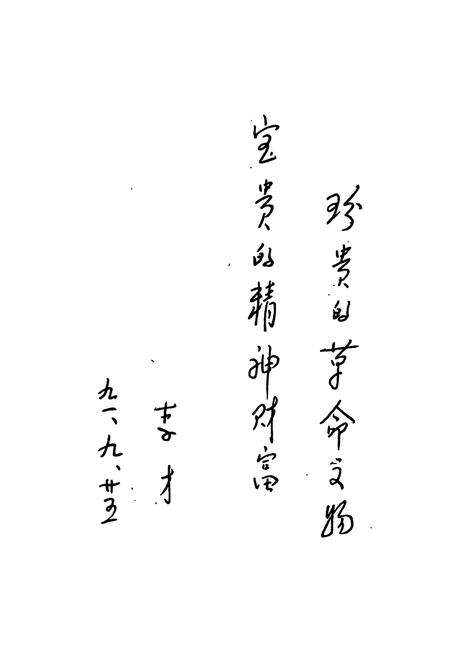 珍贵的革命文物
宝贵的精神财富
李才
九一、九、廿五